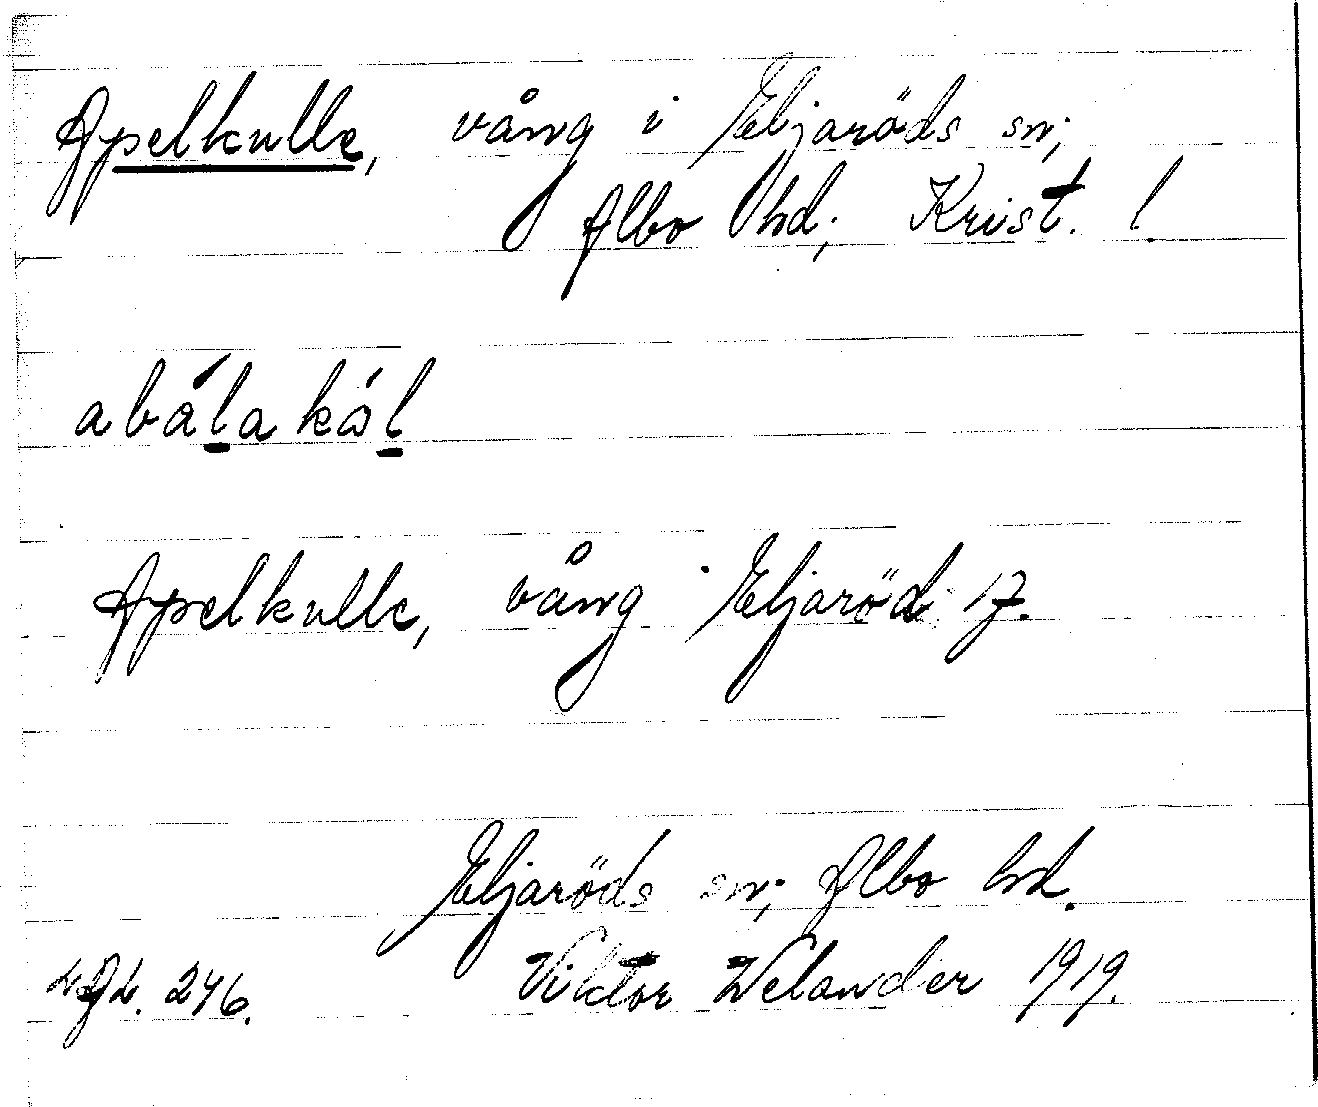 Apelkulle, vång i Eljaröds sn;
Albo hd; Krist. l.
abálakål
Apelkulle, vång. Eljaröd 17.
Eljaröds sn; Albo hd.
246. Viktor Welander 1919.